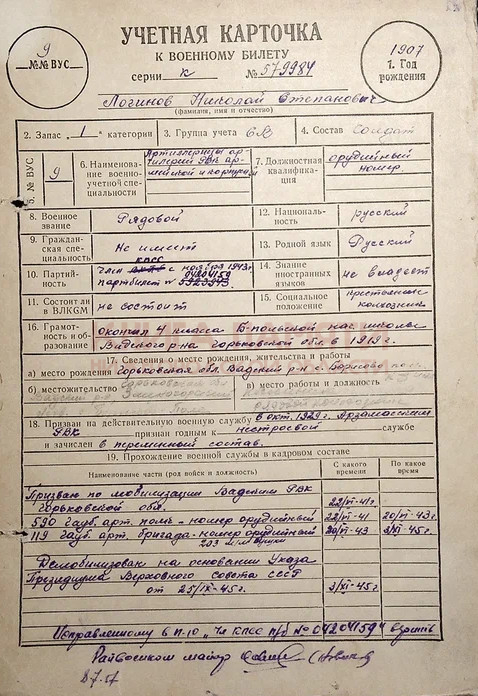 УЧЕТНАЯ КАРТОЧКА
К ВОЕННОМУ БИЛЕТУ
серии К № 579984
9
№№ ВУС
1907
1. Год
рождения
Логинов Николай Степанович
(фамилия, имя и отчество)
2. Запас 1 категории
3. Группа учета СВ
4. Состав Солдат
5. № ВУС
9
6. Наименова-
ние военно-
учетной спе-
циальности
Артиллерист ар-
тиллерии РВК ар-
мейской и корпусной
7. Должностная
квалифика-
ция
орудийный
номер
8. Военное
звание
Рядовой
9. Граждан-
ская спе-
циальность
Не имеет
10. Партий-
ность
КПСС
член с ноября 1943 г.
04204159
партбилет № 5923943
11. Состоит ли
в ВЛКСМ
не состоит
12. Националь-
ность
русский
13. Родной язык
Русский
14. Знание
иностранных
языков
не владеет
15. Социальное
положение
крестьянин
колхозник
16. Грамот-
ность и об-
разование
окончил 4 класса Б-польской нач. школы
Вадского р-на Горьковской обл. в 1919 г.
17. Сведения о месте рождения, жительства и работы
а) место рождения Горьковская обл. Вадский р-н с. Борисово поле
б) местожительство
в) место работы и должность
18. Призван на действительную военную службу в окт. 1929 г. Арзамасским
РВК признан годным к нестроевой службе
и зачислен в переменный состав.
19. Прохождение военной службы в кадровом составе
Наименование части (род войск и должность)
С какого
времени
По какое
время
Призван по мобилизации Вадским РВК
Горьковской обл. 22/VI-41 г.
590 гауб. арт. полк - номер орудийный 22/VI-41 20/VI-43 г.
119 гауб. арт. бригада - номер орудийный 20/VI-43 3/XI-45 г.
203 м/м пушки
Демобилизован на основании Указа
Президиума Верховного совета СССР
от 25/IX-45 г. 3/XI-45 г.
Исправленному в п-10 "Чл КПСС п/б № 04204159" верить
Райвоенком майор
8.7.57